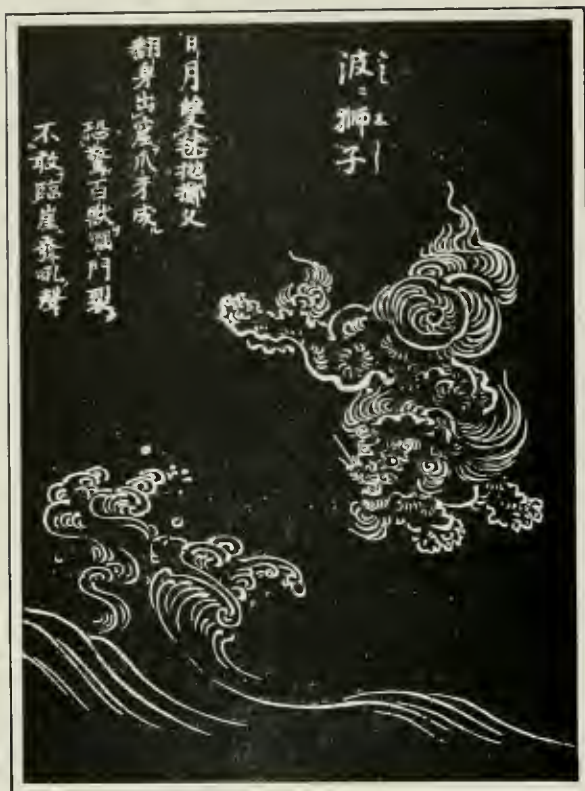 波ニ獅子
日月雙抛擲
翻身出窟爪牙成
恐驚百獸腦門裂
不敢臨崖發吼聲